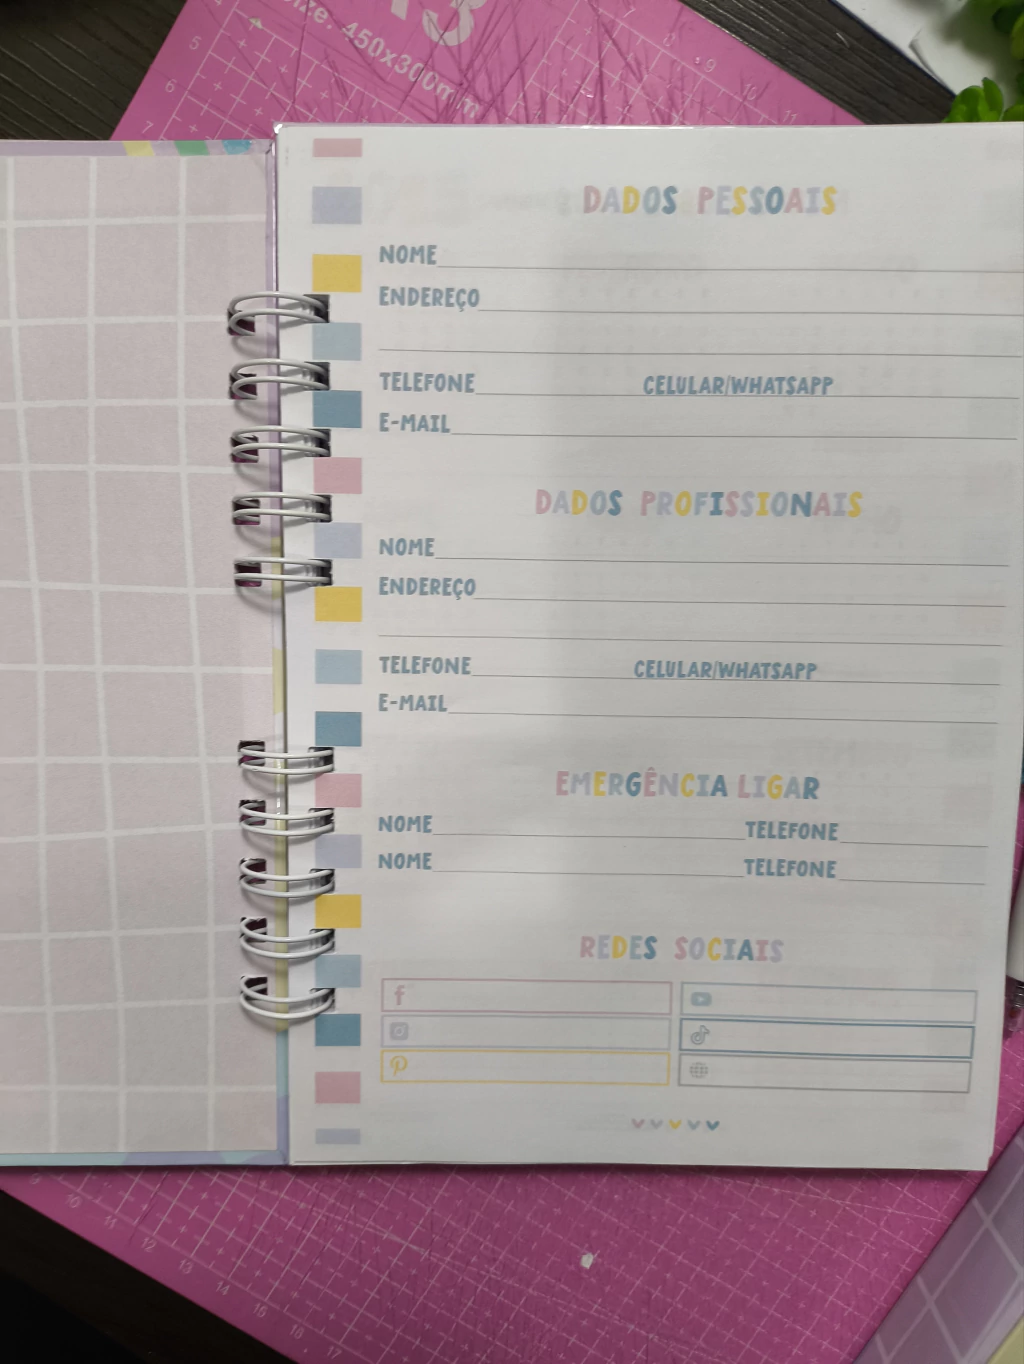 A3
Size: 450x300mm
5
6
7
9
10
11
DADOS PESSOAIS
NOME
ENDEREÇO
TELEFONE CELULAR/WHATSAPP
E-MAIL
DADOS PROFISSIONAIS
NOME
ENDEREÇO
TELEFONE CELULAR/WHATSAPP
E-MAIL
EMERGÊNCIA LIGAR
NOME TELEFONE
NOME TELEFONE
REDES SOCIAIS
9
10
11
12
13
14
15
16
17